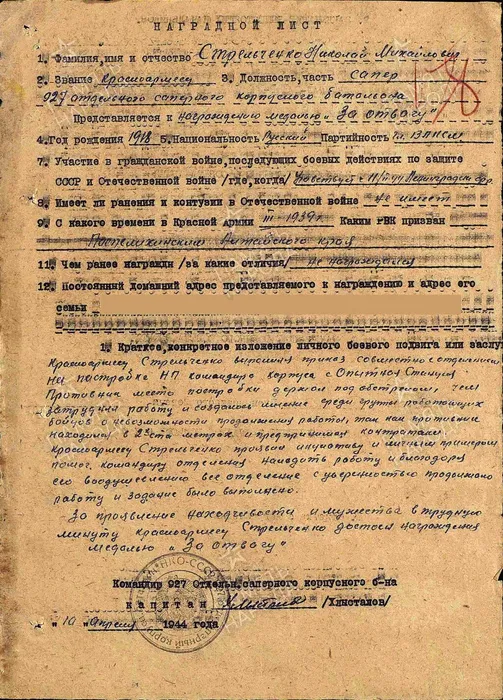 НАГРАДНОЙ ЛИСТ
1. Фамилия, имя и отчество Стрельченко Николай Михайлович
2. Звание Красноармеец 3. Должность, часть сапер
927 отдельного саперного корпусного батальона
178
Представляется к награждению медалью "За отвагу"
4. Год рождения 1918 5. Национальность Русский Партийность чл. ВЛКСМ
7. Участие в гражданской войне, последующих боевых действиях по защите
СССР и Отечественной войне /где, когда/ Ленинградск. фр
8. Имеет ли ранения и контузии в Отечественной войне не имеет
9. С какого времени в Красной Армии III-1939г Каким РВК призван
Поспелихинским Алтайского края
11. Чем ранее награжден /за какие отличия/ Не награждался
12. Постоянный домашний адрес представляемого к награждению и адрес его
семьи
1. Краткое, конкретное изложение личного боевого подвига или заслу
Красноармеец Стрельченко выполняя приказ совместно с отделением
на постройке НП командира корпуса с Опытная Станция
Противник места постройки держал под обстрелом, чем
затруднял работу и создалось мнение среди группы работающих
бойцов о невозможности продолжения работы, так как противник
находился в 25-ста метрах и предпринимал контратаки
Красноармеец Стрельченко проявил инициативу и личным примером
помог командиру отделения наводить работу и благодоря
его воодушевлению все отделение с уверенностью продолжало
работу и задание было выполнено.
За проявление находчивости и мужества в трудную
минуту красноармеец Стрельченко достоен награждения
медалью "За отвагу"
Командир 927 Отдельн. саперного корпусного б-на
капитан /Хлистанов/
"10" Апреля 1944 года